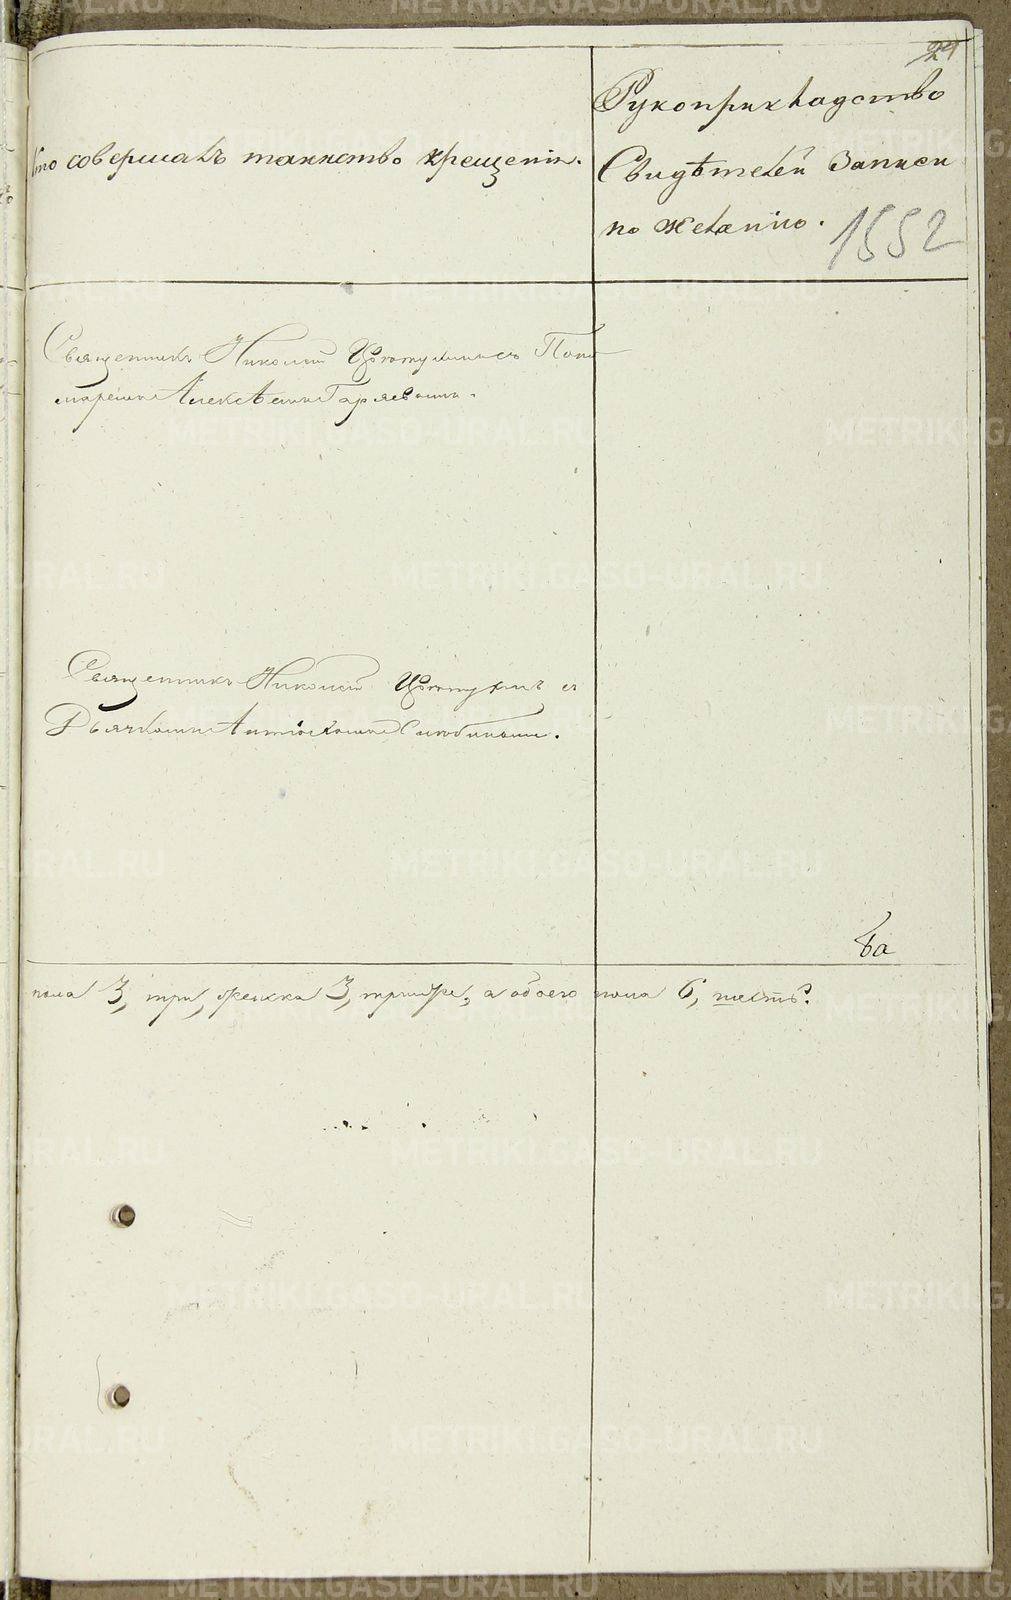 Кто совершалъ таинство крещенія.
Рукоприкладство
свидѣтелей записи
по желанію.
1552
Священникъ Николай съ Поно-
маремъ Алексѣемъ
Священникъ Николай съ
Дьячкомъ
ба
пола 3, три, женска 3, три же, а обоего пола 6, шесть.
METRIKI.GASO-URAL.RU